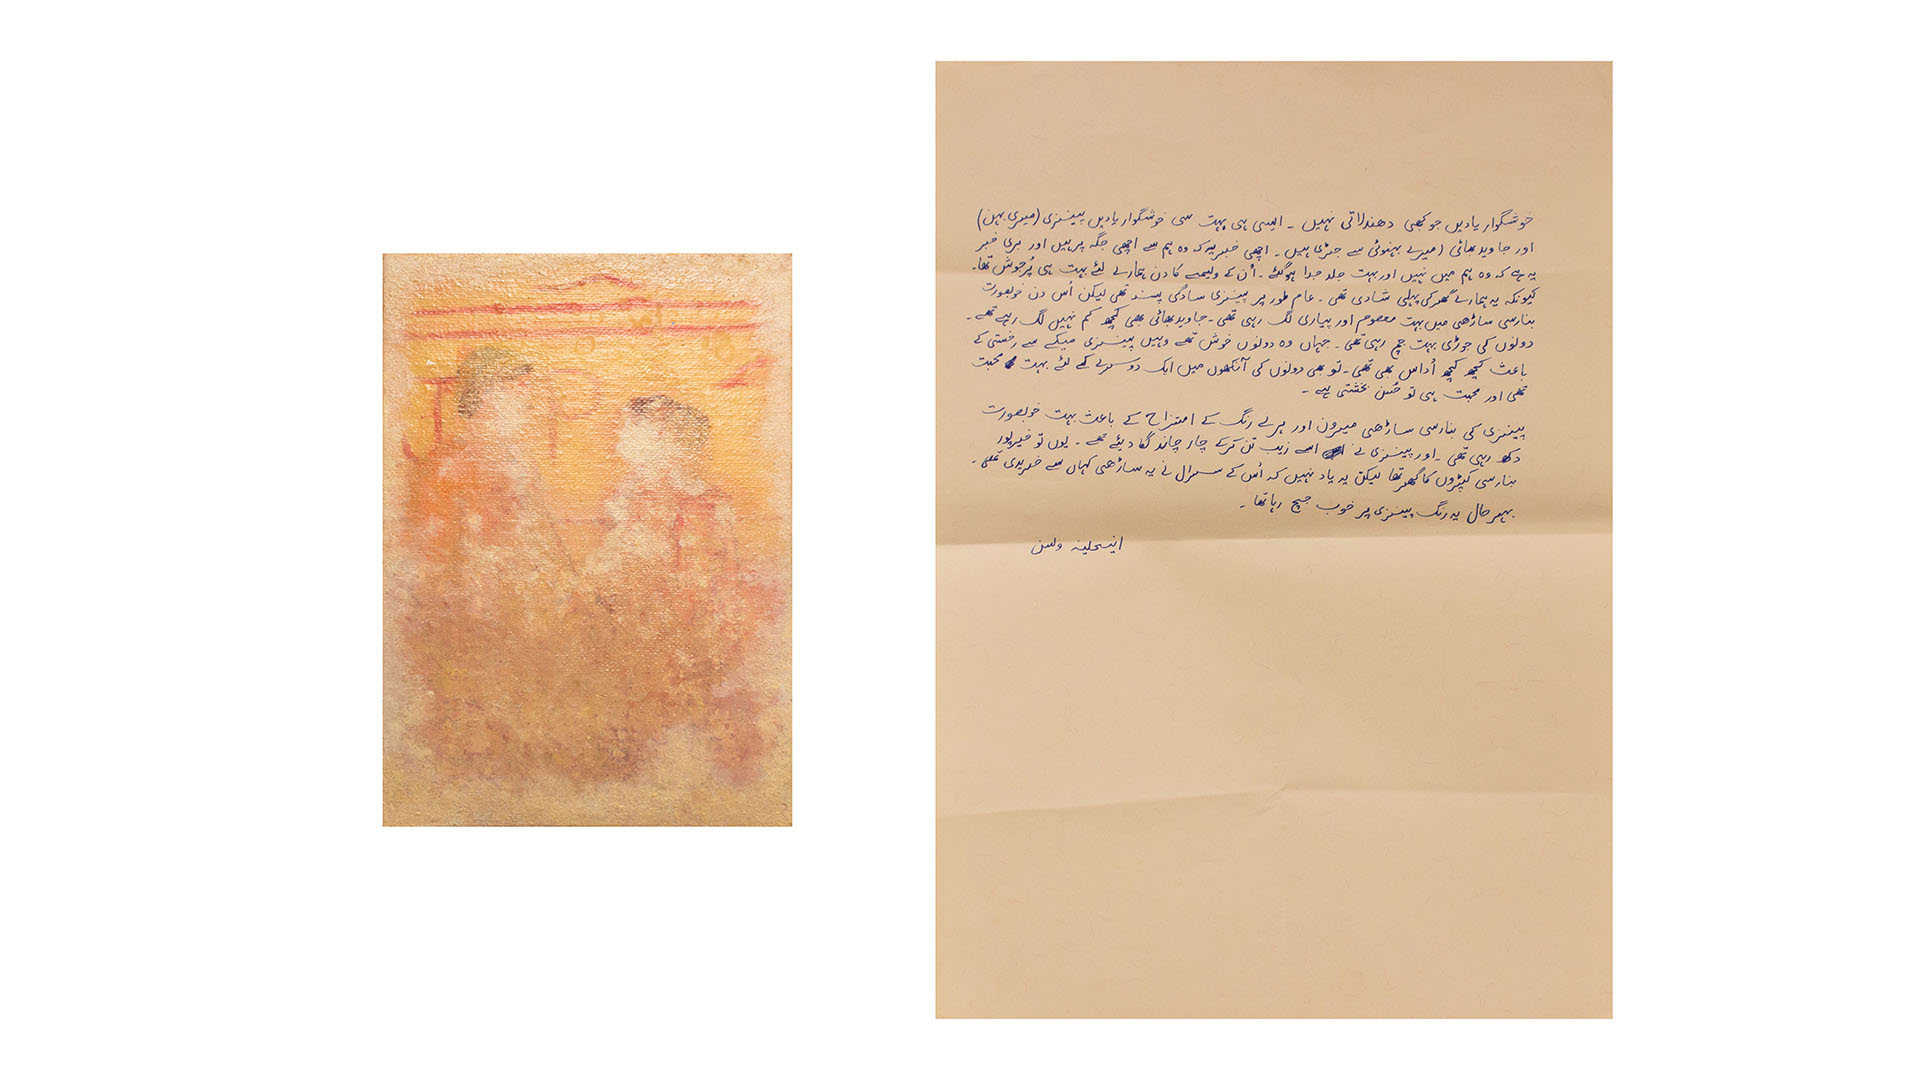 خوشگوار یادیں جو کبھی دھندلاتی نہیں ۔ ایسی ہی بہت سی خوشگوار یادیں پینزی (میری بہن)
اور جاوید بھائی (میرے بہنوئی سے جڑی ہیں ۔ اچھی خبر یہ کہ وہ ہم سے اچھی جگہ پر ہیں اور بری خبر
یہ ہے کہ وہ ہم میں نہیں اور بہت جلد جدا ہو گئے ۔ اُن کے ولیمے کا دن ہمارے لئے بہت ہی پُرجوش تھا۔
کیونکہ یہ ہمارے گھر کی پہلی شادی تھی ۔ عام طور پر پینزی سادگی پسند تھی لیکن اُس دن خوبصورت
بنارسی ساڑھی میں بہت معصوم اور پیاری لگ رہی تھی ۔ جاوید بھائی بھی کچھ کم نہیں لگ رہے تھے ۔
دونوں کی جوڑی بہت جچ رہی تھی ۔ جہاں وہ دونوں خوش تھے وہیں پینزی میکے سے رخصتی کے
باعث کچھ کچھ اُداس بھی تھی ۔ تو بھی دونوں کی آنکھوں میں ایک دوسرے کے لئے بہت محبت
تھی اور محبت ہی تو حُسن بخشتی ہے ۔
پینزی کی بنارسی ساڑھی میرون اور ہرے رنگ کے امتزاج کے باعث بہت خوبصورت
دکھ رہی تھی ۔ اور پینزی نے اسے زیب تن کرکے چار چاند لگا دیئے تھے ۔ یوں تو خیرپور
بنارسی کپڑوں کا گھر تھا لیکن یہ یاد نہیں کہ اُس کے سسرال نے یہ ساڑھی کہاں سے خریدی تھی ۔
بہرحال یہ رنگ پینزی پر خوب جچ رہا تھا ۔
ولسن